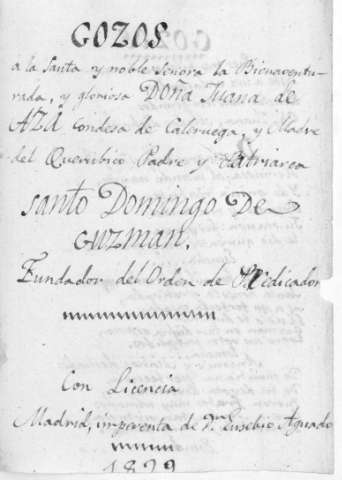 GOZOS
a la Santa y noble Señora la Bienaventu-
rada, y gloriosa Doña Juana de
AZA Condesa de Caleruega, y Madre
del Querubico Padre y Patriarca
Santo Domingo De
GUZMAN.
Fundador del Orden de Predicador
Con Licencia
Madrid, imprenta de Dn Eusebio Aguado
1829